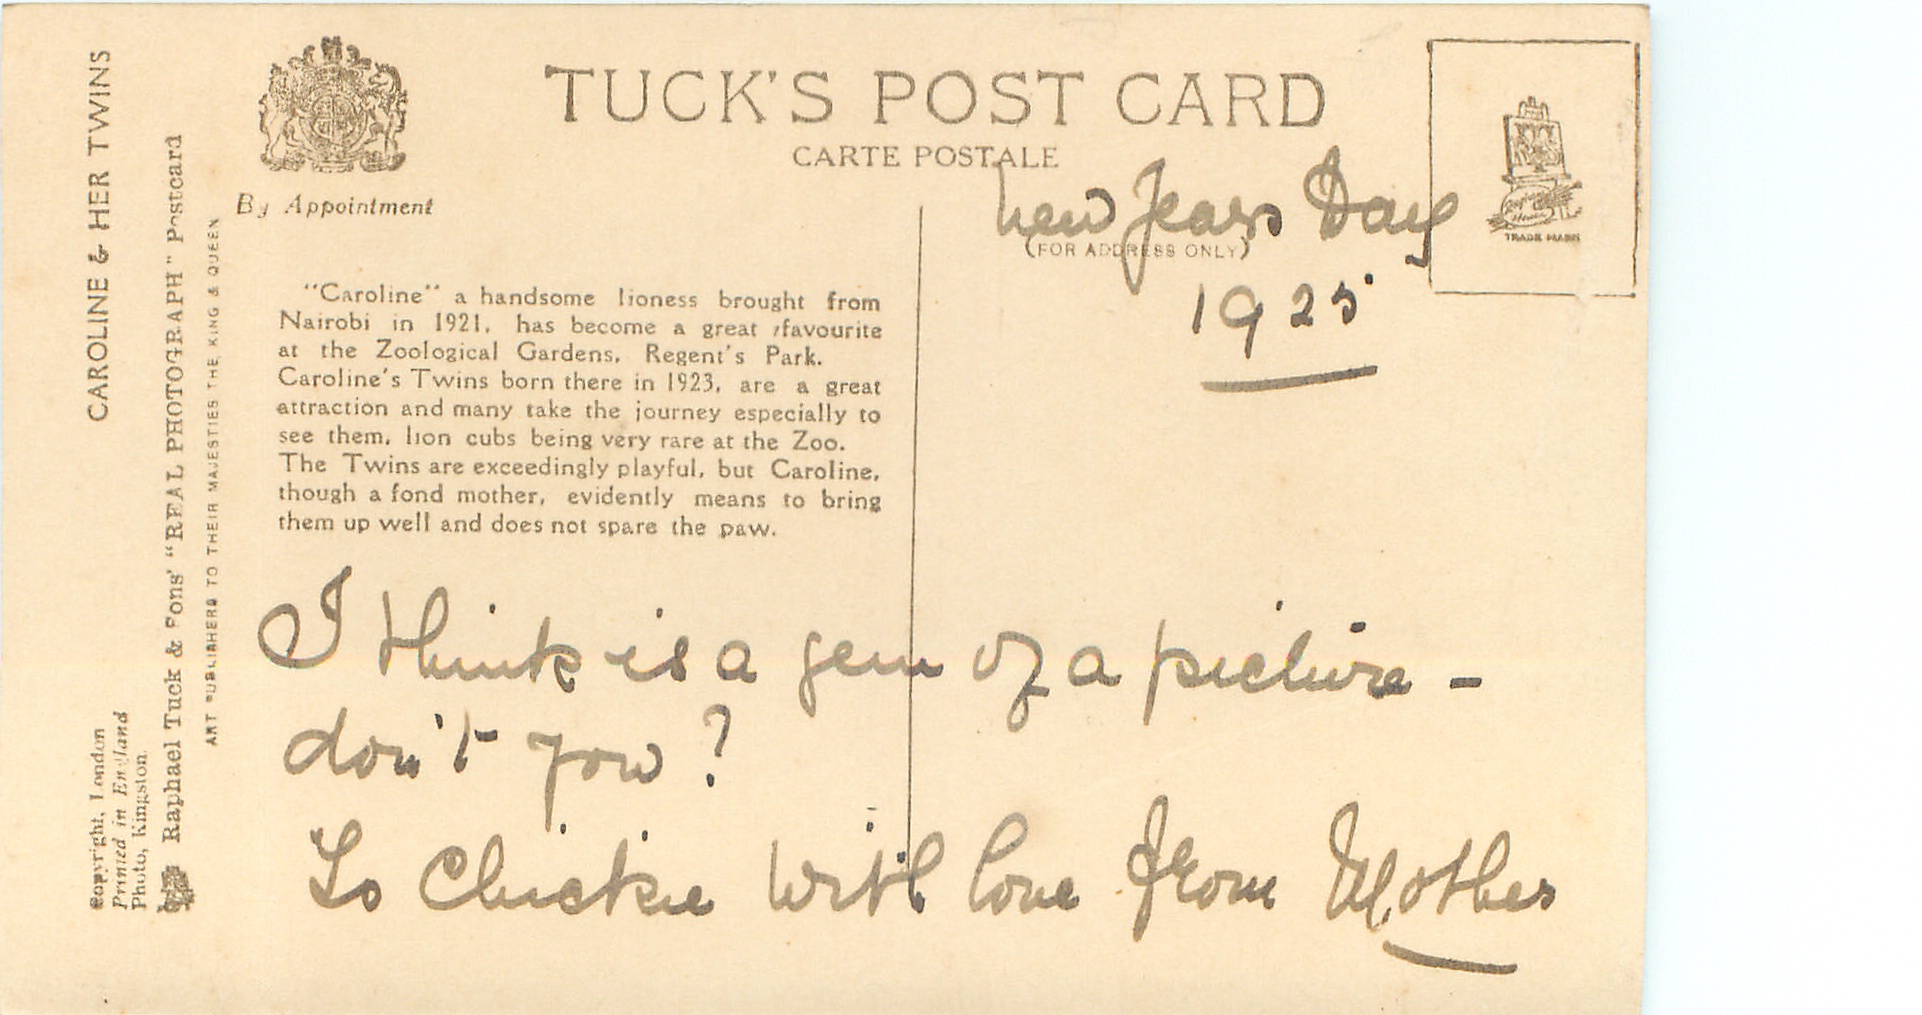 TUCK'S POST CARD
CARTE POSTALE
By Appointment
New Years Day
(FOR ADDRESS ONLY)
1925
TRADE MARK
"Caroline" a handsome lioness brought from
Nairobi in 1921, has become a great favourite
at the Zoological Gardens, Regent's Park.
Caroline's Twins born there in 1923, are a great
attraction and many take the journey especially to
see them, lion cubs being very rare at the Zoo.
The Twins are exceedingly playful, but Caroline,
though a fond mother, evidently means to bring
them up well and does not spare the paw.
I think is a gem of a picture –
don't you?
To Chickie with love from Mother
CAROLINE & HER TWINS
Copyright, London
Printed in England
Photo, Kingston.
Raphael Tuck & Sons' "REAL PHOTOGRAPH" Postcard
ART PUBLISHERS TO THEIR MAJESTIES THE KING & QUEEN